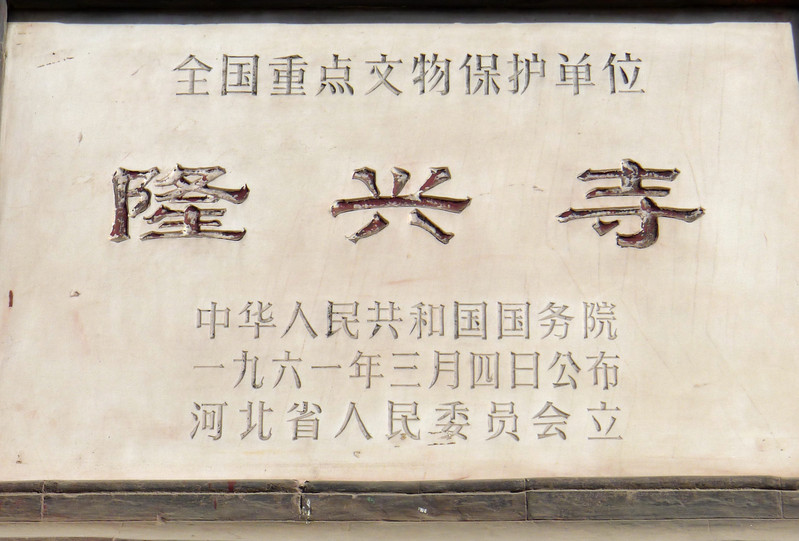 全国重点文物保护单位
隆兴寺
中华人民共和国国务院
一九六一年三月四日公布
河北省人民委员会立